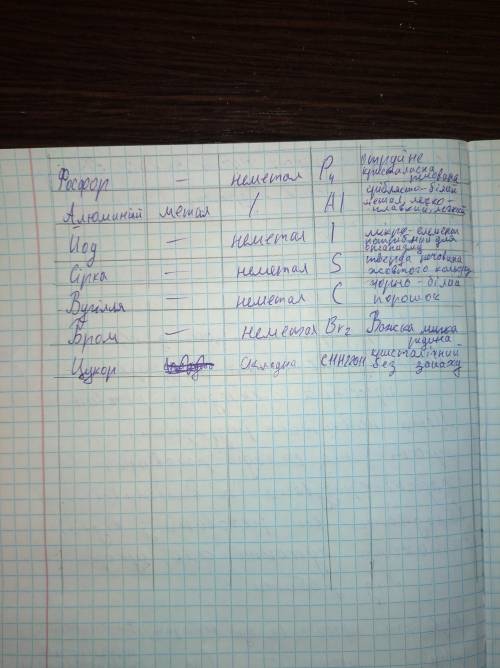 Фосфор — неметал P4 отруйне кристаласка речовина
Алюминий метал / Al сріблясто-білий метал, легко-плавкий, легкий
Йод — неметал I микро-елемент потрібний для організму
Сірка — неметал S тверда речовина жовтого кольору
Вугілля — неметал C чорно-білий порошок
Бром — неметал Br2 Важка рідина
Цукор складна C11H22O11 кристалічний без запаху